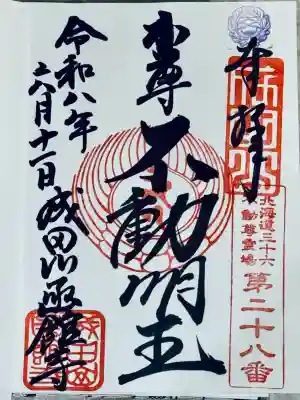 奉拝
北海道三十六
不動尊霊場
第二十八番
本尊
不動明王
令和八年
六月十一日
成田山函館寺